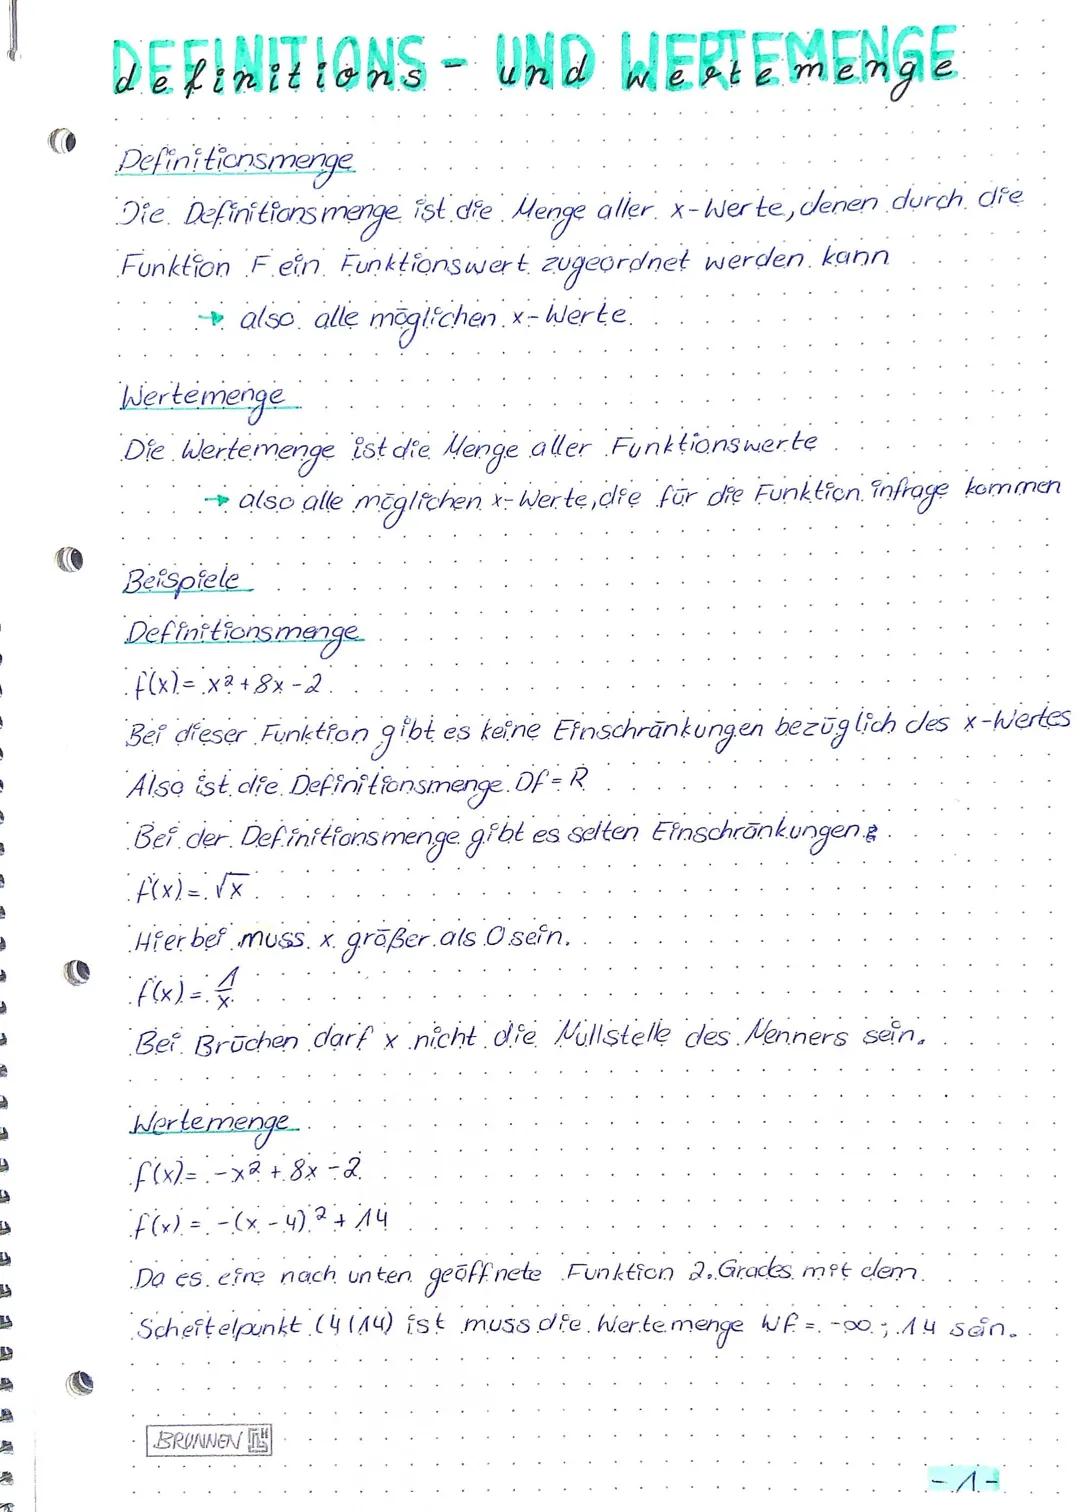 DEFINITIONS- UND WERTEMENGE
definitions - und wertemenge
Definitionsmenge
Die Definitionsmenge ist die Menge aller x-Werte, denen durch die
Funktion F ein Funktionswert zugeordnet werden kann
→ also alle möglichen x-Werte.
Wertemenge
Die Wertemenge ist die Menge aller Funktionswerte
→ also alle möglichen x-Werte, die für die Funktion infrage kommen
Beispiele
Definitionsmenge
f(x) = x² + 8x - 2
Bei dieser Funktion gibt es keine Einschränkungen bezüglich des x-Wertes
Also ist die Definitionsmenge Df = R
Bei der Definitionsmenge gibt es selten Einschränkungen:
f(x) = √x
Hierbei muss x größer als 0 sein.
f(x) = 1/x
Bei Brüchen darf x nicht die Nullstelle des Nenners sein.
Wertemenge
f(x) = -x² + 8x - 2
f(x) = -(x - 4)² + 14
Da es eine nach unten geöffnete Funktion 2. Grades mit dem
Scheitelpunkt (4|14) ist muss die Wertemenge Wf = -∞ ; 14 sein.
BRUNNEN
- 1 -